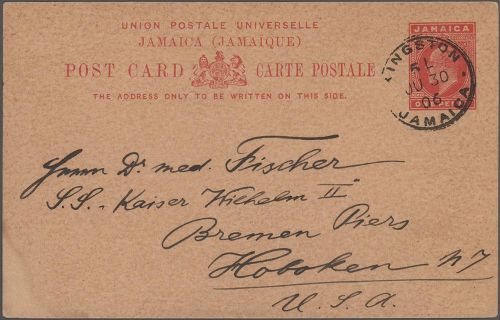 UNION POSTALE UNIVERSELLE
JAMAICA (JAMAIQUE)
POST CARD CARTE POSTALE
THE ADDRESS ONLY TO BE WRITTEN ON THIS SIDE.
JAMAICA
KINGSTON
JU 30
06
JAMAICA
Herrn Dr. med. Fischer
S.S. "Kaiser Wilhelm II"
Bremen Piers
Hoboken N7
U.S.A.